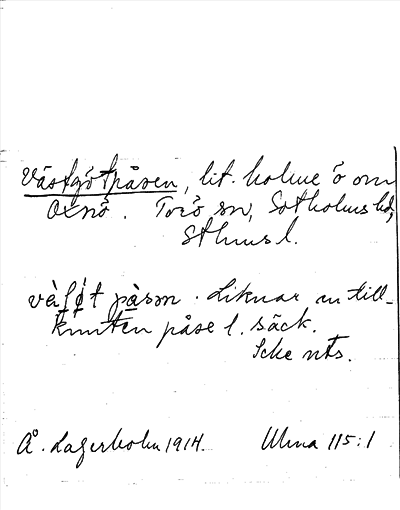 Västgötpåsen, lit. holme ö om
Oxnö. Torö sn, Sotholms hd,
Sthms l.
pås̩n. Liknar en till-
knuten påse l. säck.
Icke nts.
Å. Lagerholm 1914. Ulma 115:1